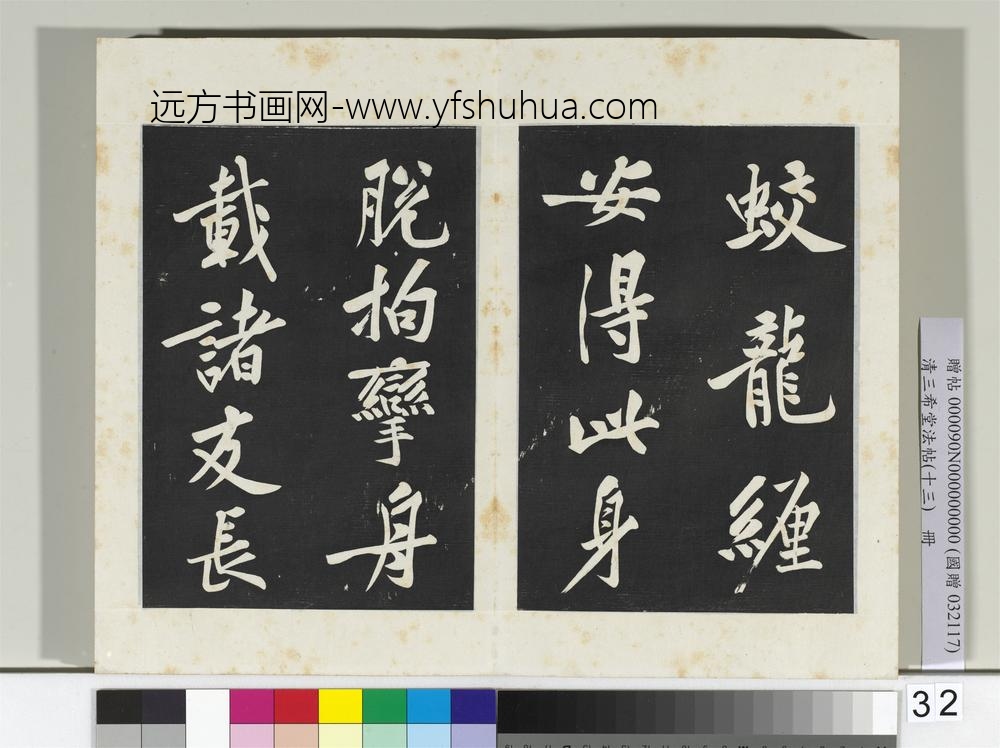 远方书画网-www.yfshuhua.com
蛟龍纏
安得此身
脫拘攣舟
載諸友長
贈帖 000090N000000000 (國贈 032117)
清三希堂法帖(十三) 冊
32